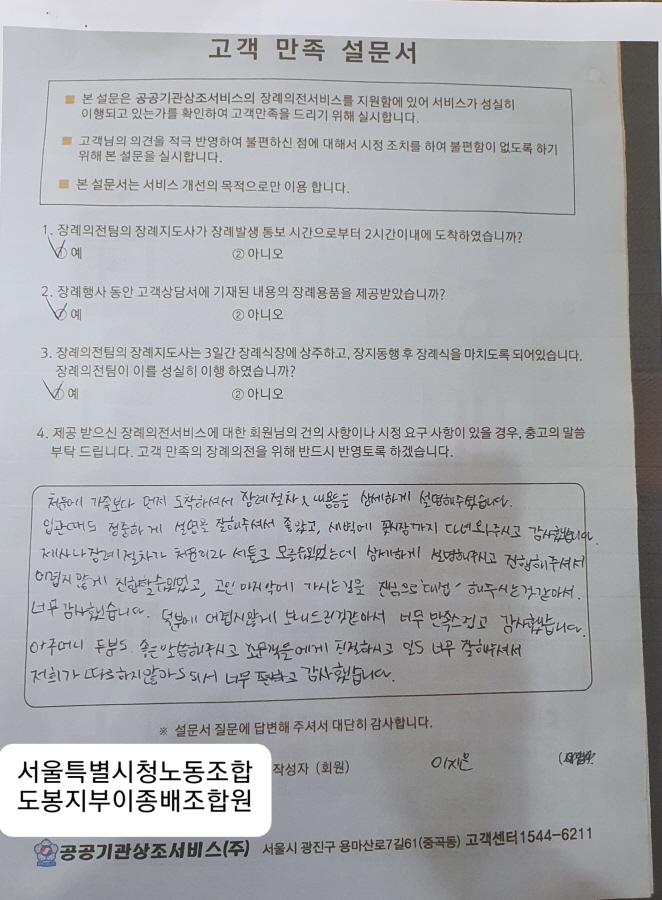 고객 만족 설문서
■ 본 설문은 공공기관상조서비스의 장례의전서비스를 지원함에 있어 서비스가 성실히
이행되고 있는가를 확인하여 고객만족을 드리기 위해 실시합니다.
■ 고객님의 의견을 적극 반영하여 불편하신 점에 대해서 시정 조치를 하여 불편함이 없도록 하기
위해 본 설문을 실시합니다.
■ 본 설문서는 서비스 개선의 목적으로만 이용 합니다.
1. 장례의전팀의 장례지도사가 장례발생 통보 시간으로부터 2시간이내에 도착하였습니까?
① 예 ② 아니오
2. 장례행사 동안 고객상담서에 기재된 내용의 장례용품을 제공받았습니까?
① 예 ② 아니오
3. 장례의전팀의 장례지도사는 3일간 장례식장에 상주하고, 장지동행 후 장례식을 마치도록 되어있습니다.
장례의전팀이 이를 성실히 이행 하였습니까?
① 예 ② 아니오
4. 제공 받으신 장례의전서비스에 대한 회원님의 건의 사항이나 시정 요구 사항이 있을 경우, 충고의 말씀
부탁 드립니다. 고객 만족의 장례의전을 위해 반드시 반영토록 하겠습니다.
처음에 가족보다 먼저 도착하셔서 장례절차나 내용을 상세하게 설명해주셨습니다.
입관때도 정중하게 설명을 잘해주셔서 좋았고, 새벽에 장까지 다녀와주시고 감사했습니다.
제사나 장례절차가 처음이라 서툴고 모를수있었는데 상세하게 설명해주시고 진행해주셔서
어렵지않게 진행할수있었고, 고인 마지막에 가시는길을 진심으로 대접 해주시는것같아서.
너무 감사했습니다. 덕분에 어렵지않게 보내드린것같아서 너무 만족스럽고 감사했습니다.
아주머니 두분도 좋은말씀해주시고 조문객들에게 친절하시고 일도 너무 잘해주셔서
저희가 따로하지않아도되서 너무 편하고 감사했습니다.
※ 설문서 질문에 답변해 주셔서 대단히 감사합니다.
작성자 (회원) 이재은
서울특별시청노동조합
도봉지부이종배조합원
공공기관상조서비스(주) 서울시 광진구 용마산로7길61(중곡동) 고객센터1544-6211